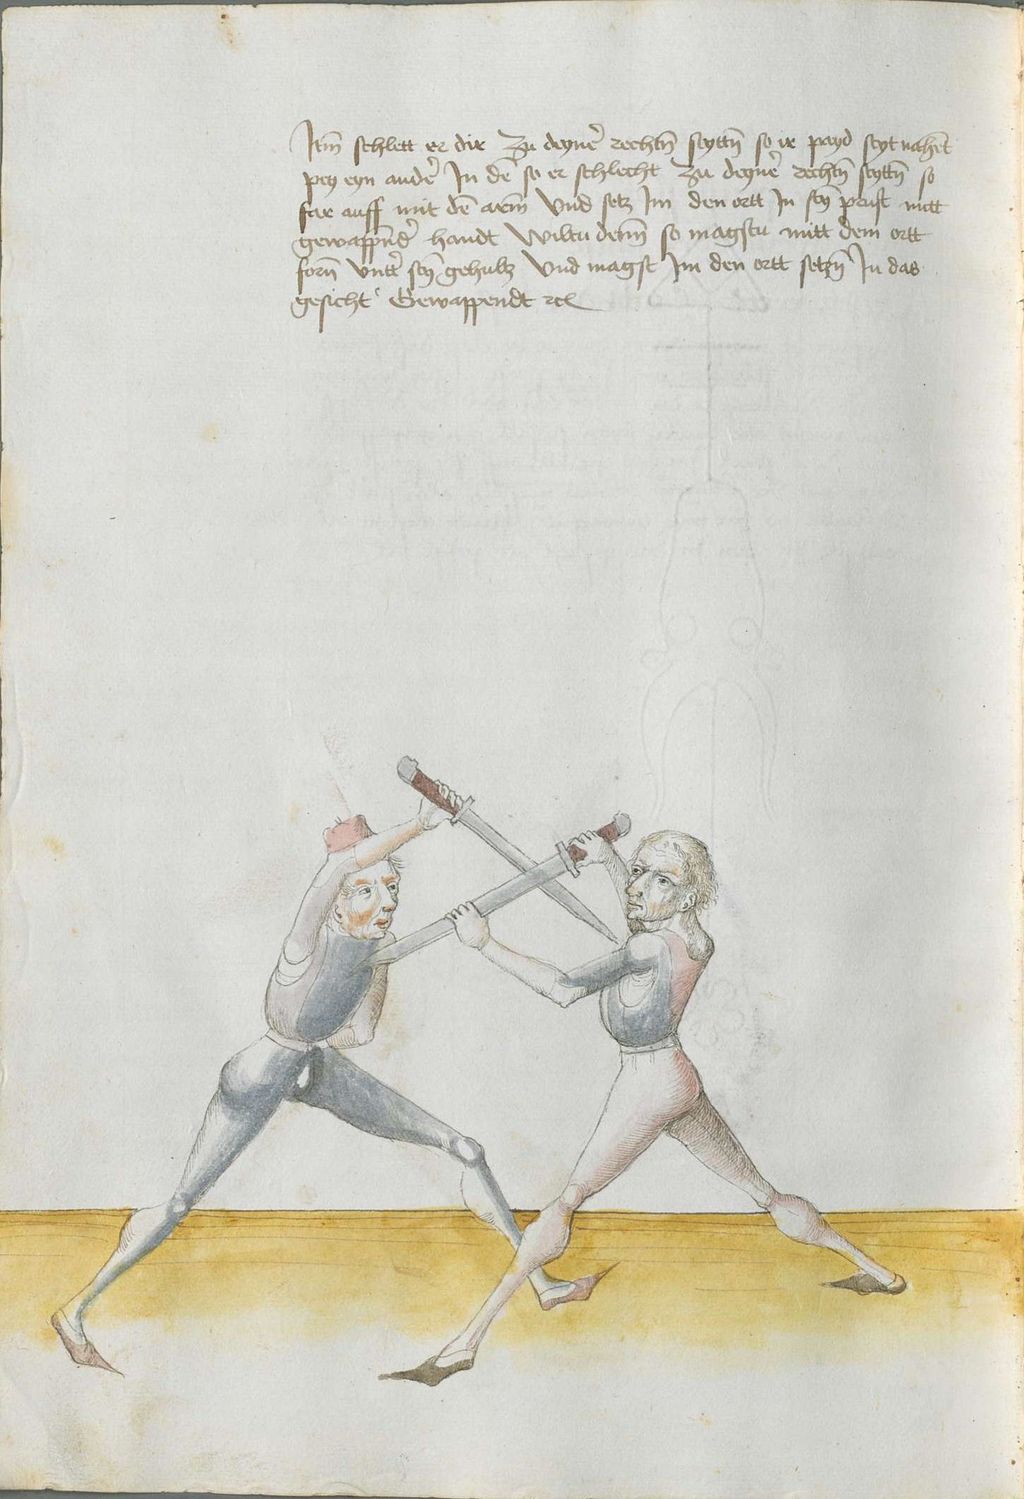 Itm̄ schlett er dir zu deyne᷑ rechtn̄ seyttn̄ so ir payd seyt nahet
pey eyn ande᷑ In de͞ so er schlecht zu deyne᷑ rechtn̄ seyttn̄ so
far auff mit de͞ arm̄ Vnd setz Im den ortt In sey͞ prust mitt
gewappn̄de᷑ handt Wiltu den͞n so magstu mitt dem ortt
forn̄ Vntt᷑ sey͞ gehultz Vnd magst Im den ortt setzn̄ In das
gesicht Gewappendt rcl